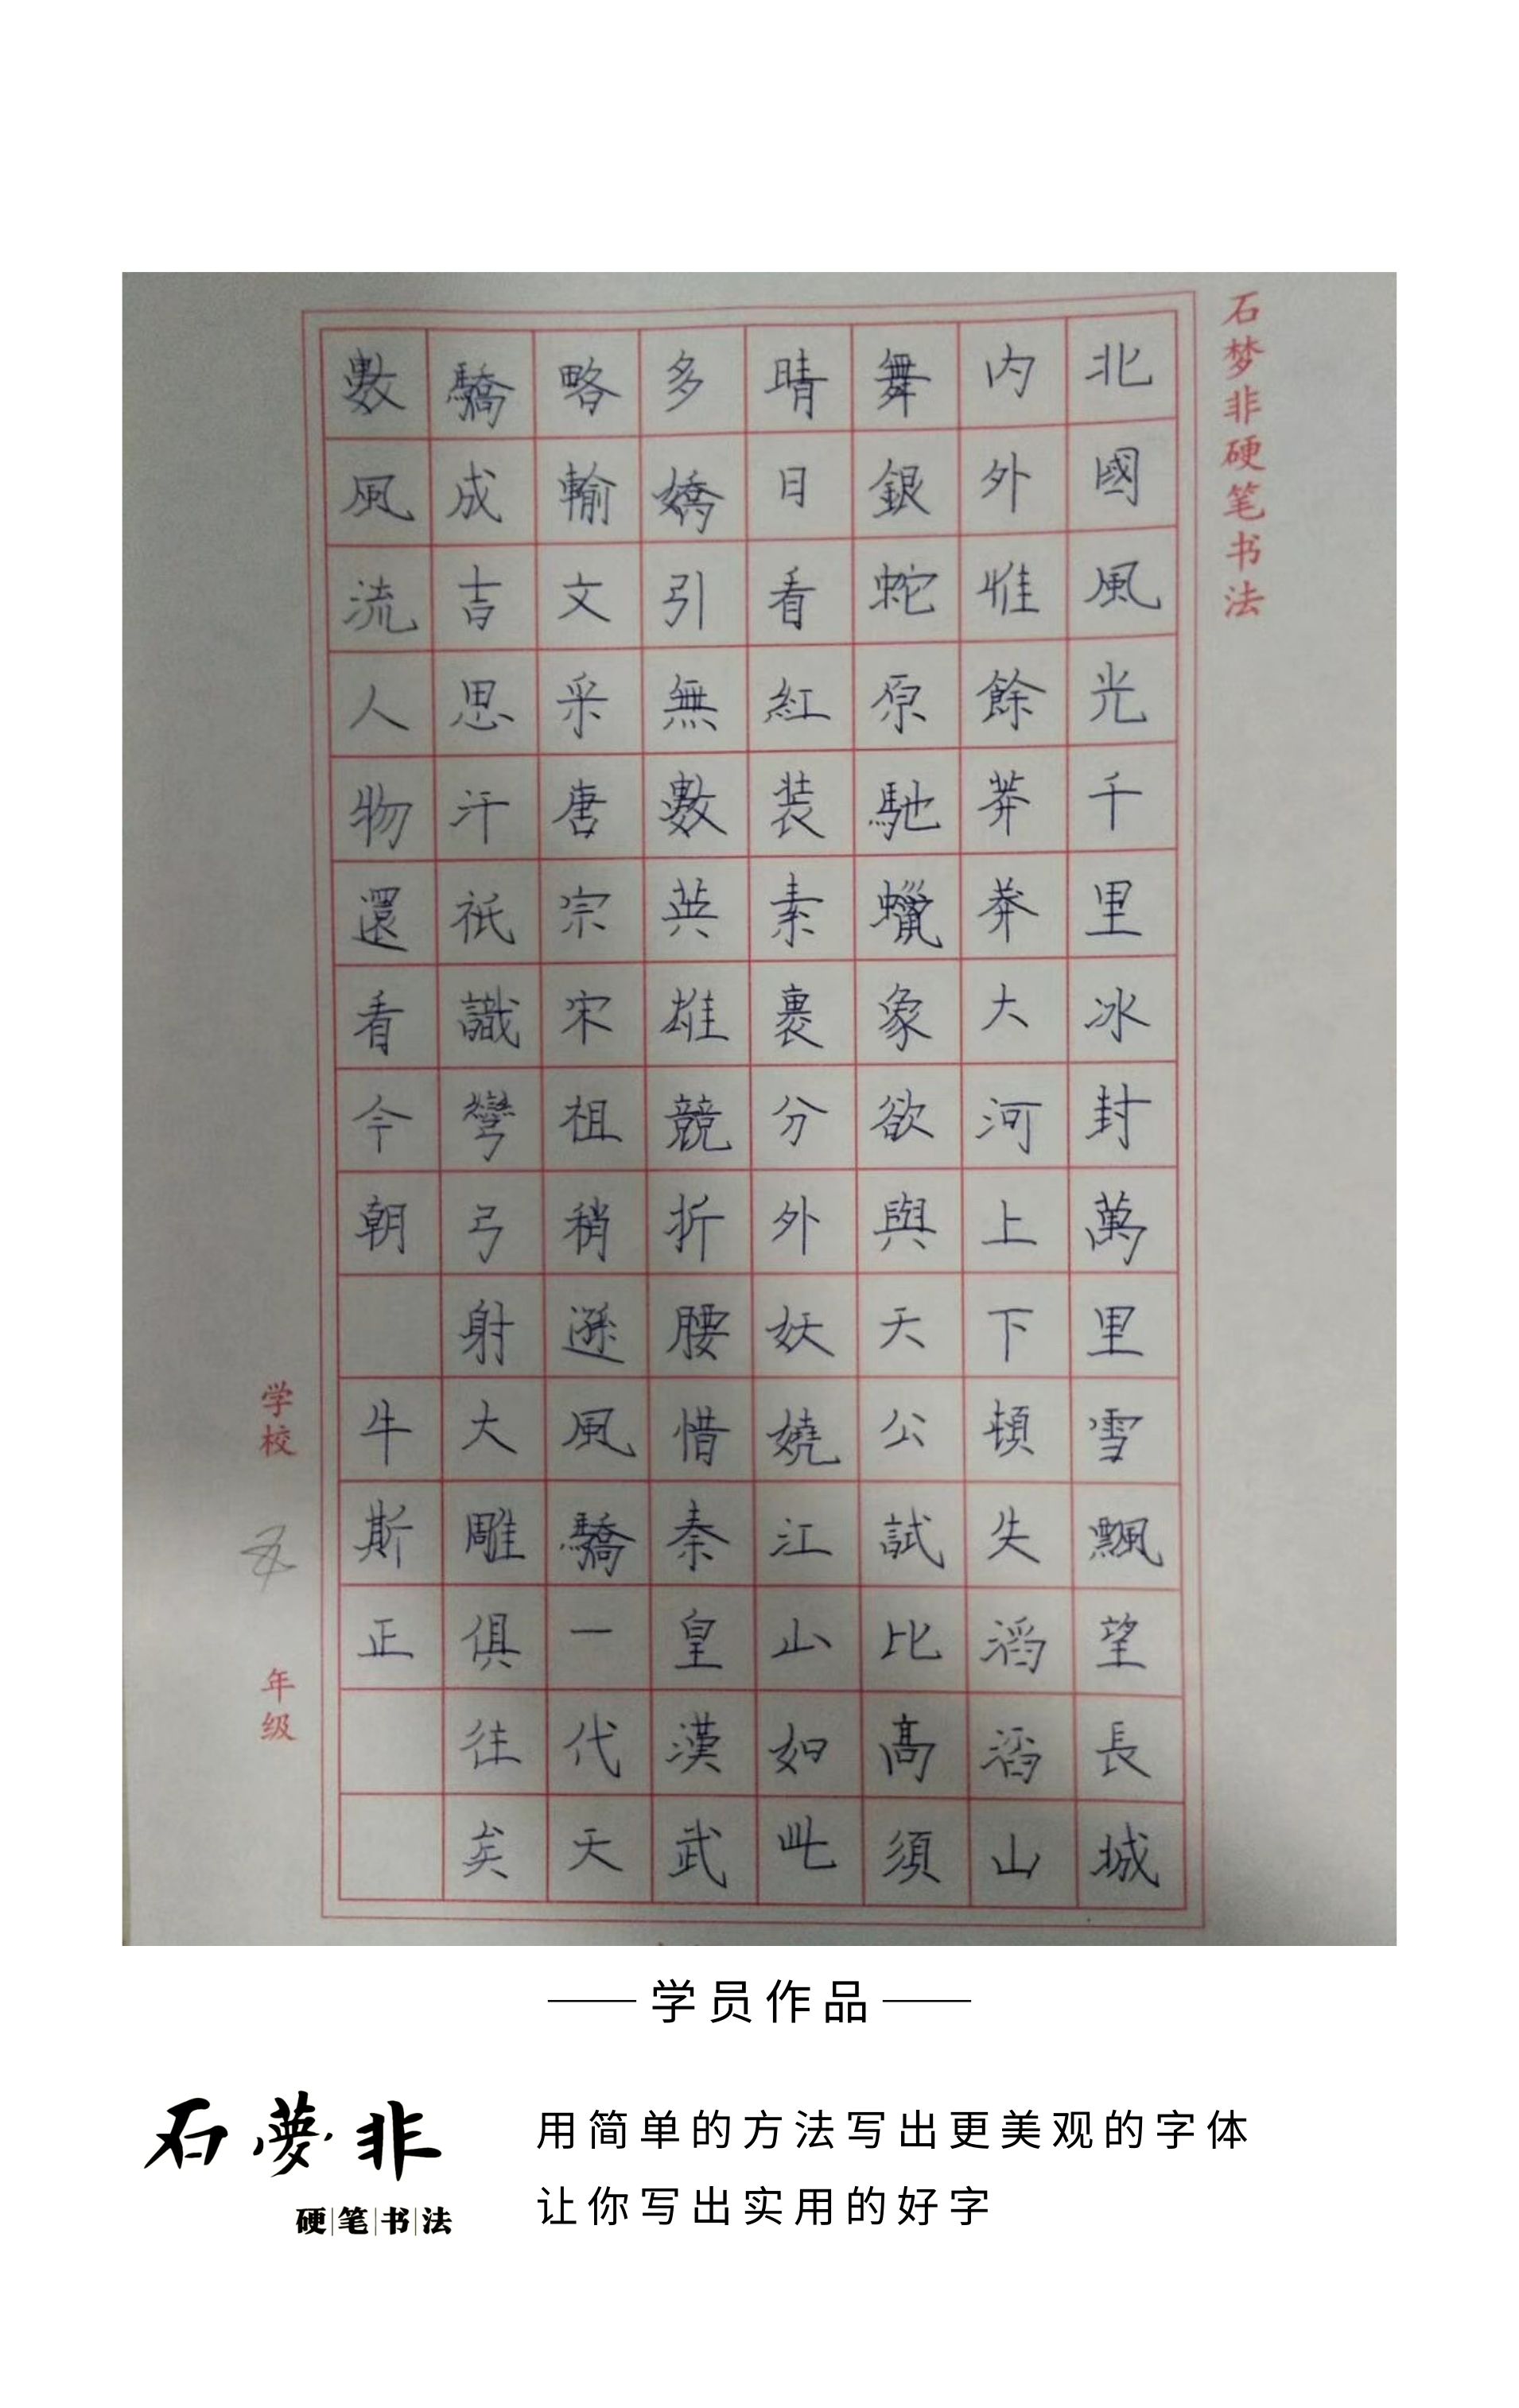 石梦非硬笔书法
北國風光千里冰封萬里雪飄望長城
内外惟餘莽莽大河上下頓失滔滔山
舞銀蛇原馳蠟象欲與天公試比高須
晴日看紅装素裹分外妖嬈江山如此
多嬌引無數英雄競折腰惜秦皇漢武
略輸文采唐宗宋祖稍遜風驕一代天
驕成吉思汗祇識彎弓射大雕俱往矣
數風流人物還看今朝 牛斯正
学校
年级
学员作品
石夢非
硬笔书法
用简单的方法写出更美观的字体
让你写出实用的好字